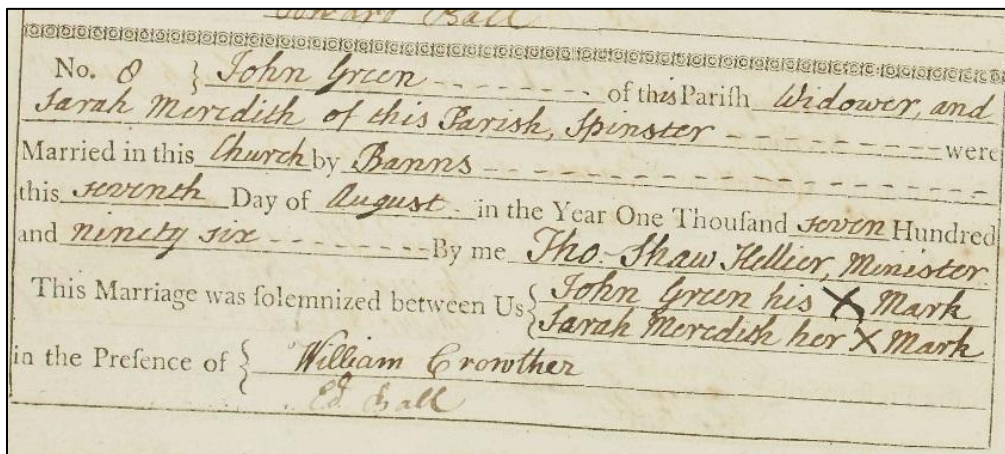 Edward Ball
No. 8 } John Green - - - - - - - of this Pariſh Widower, and
Sarah Meredith of this Parish, Spinster - - - - - - - were
Married in this Church by Banns - - - - - - - - - - - - - - - - - -
this seventh Day of August - in the Year One Thouſand seven Hundred
and ninety six - - - - - - - - By me Tho. Shaw Hellier, Minister
This Marriage was ſolemnized between Us { John Green his X Mark
Sarah Meredith her X Mark
in the Preſence of { William Crowther
Ed. Ball